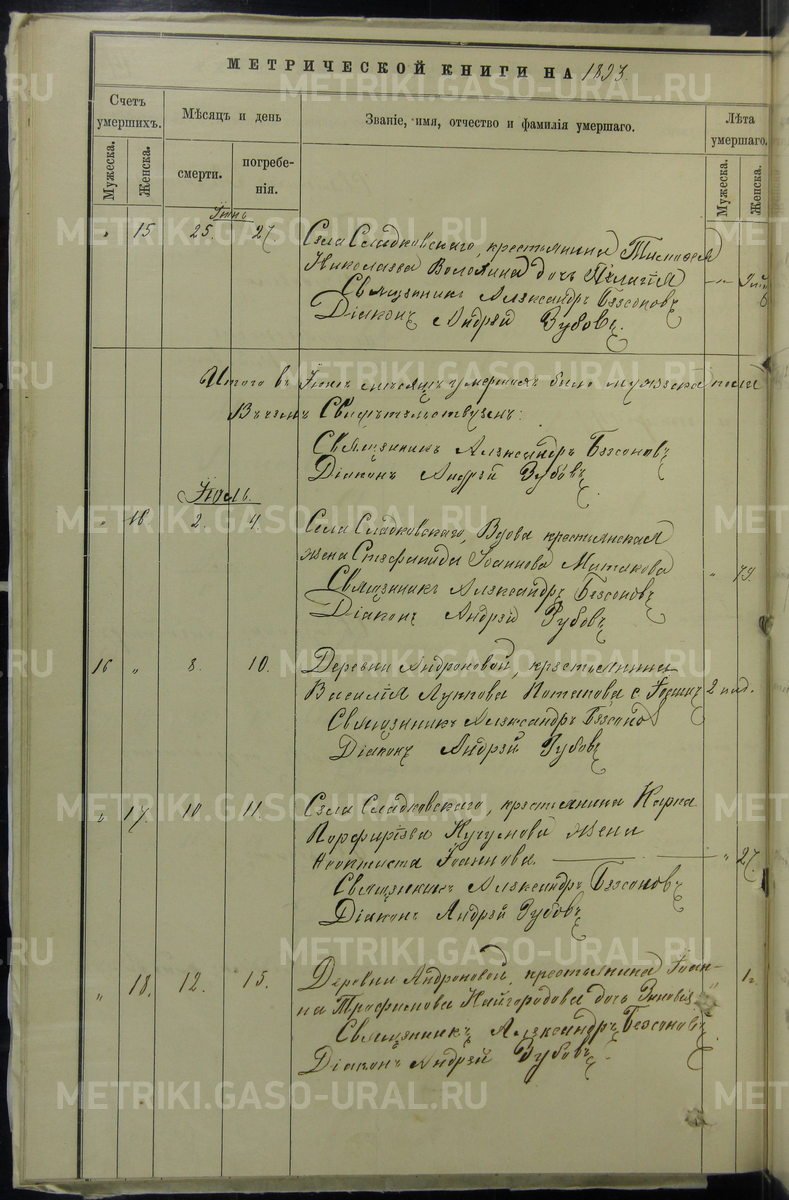 МЕТРИЧЕСКОЙ КНИГИ НА 1893.
Счетъ умершихъ.
Мѣсяцъ и день
Званіе, имя, отчество и фамилія умершаго.
Лѣта умершаго.
Мужеска.
Женска.
смерти.
погребенія.
Мужеска.
Женска.
Іюнь
" 15 25. 27. Села Сладковскаго, крестьянина Тимофея
Николаева дочь Пелагія
Священникъ Александръ Безсоновъ
Діаконъ Андрей Зубовъ.
Итого въ Іюнѣ мѣсяцѣ умершихъ было мужеска пола
Въ чемъ Свидѣтельствуемъ:
Священникъ Александръ Безсоновъ
Діаконъ Андрей Зубовъ.
Іюль.
" 16 2. 4. Села Сладковскаго, Вдова крестьянская
жена Іоаннова " 79.
Священникъ Александръ Безсоновъ
Діаконъ Андрей Зубовъ
16 " 8. 10. Деревни Андроновой, крестьянина
Василія Потапова с. 2 нед.
Священникъ Александръ Безсонов
Діаконъ Андрей Зубовъ
" 17. 10. 11. Села Сладковскаго, крестьянина Карпа
Порфирьева жена
Іоаннова. " 27.
Священникъ Александръ Безсоновъ
Діаконъ Андрей Зубовъ
" 18. 12. 13. Деревни Андроновой, крестьянина Іоан-
на Трофимова Кайгородова дочь Зиновія " 1 г.
Священникъ Александръ Безсоновъ
Діаконъ Андрей Зубовъ.
METRIKI.GASO-URAL.RU